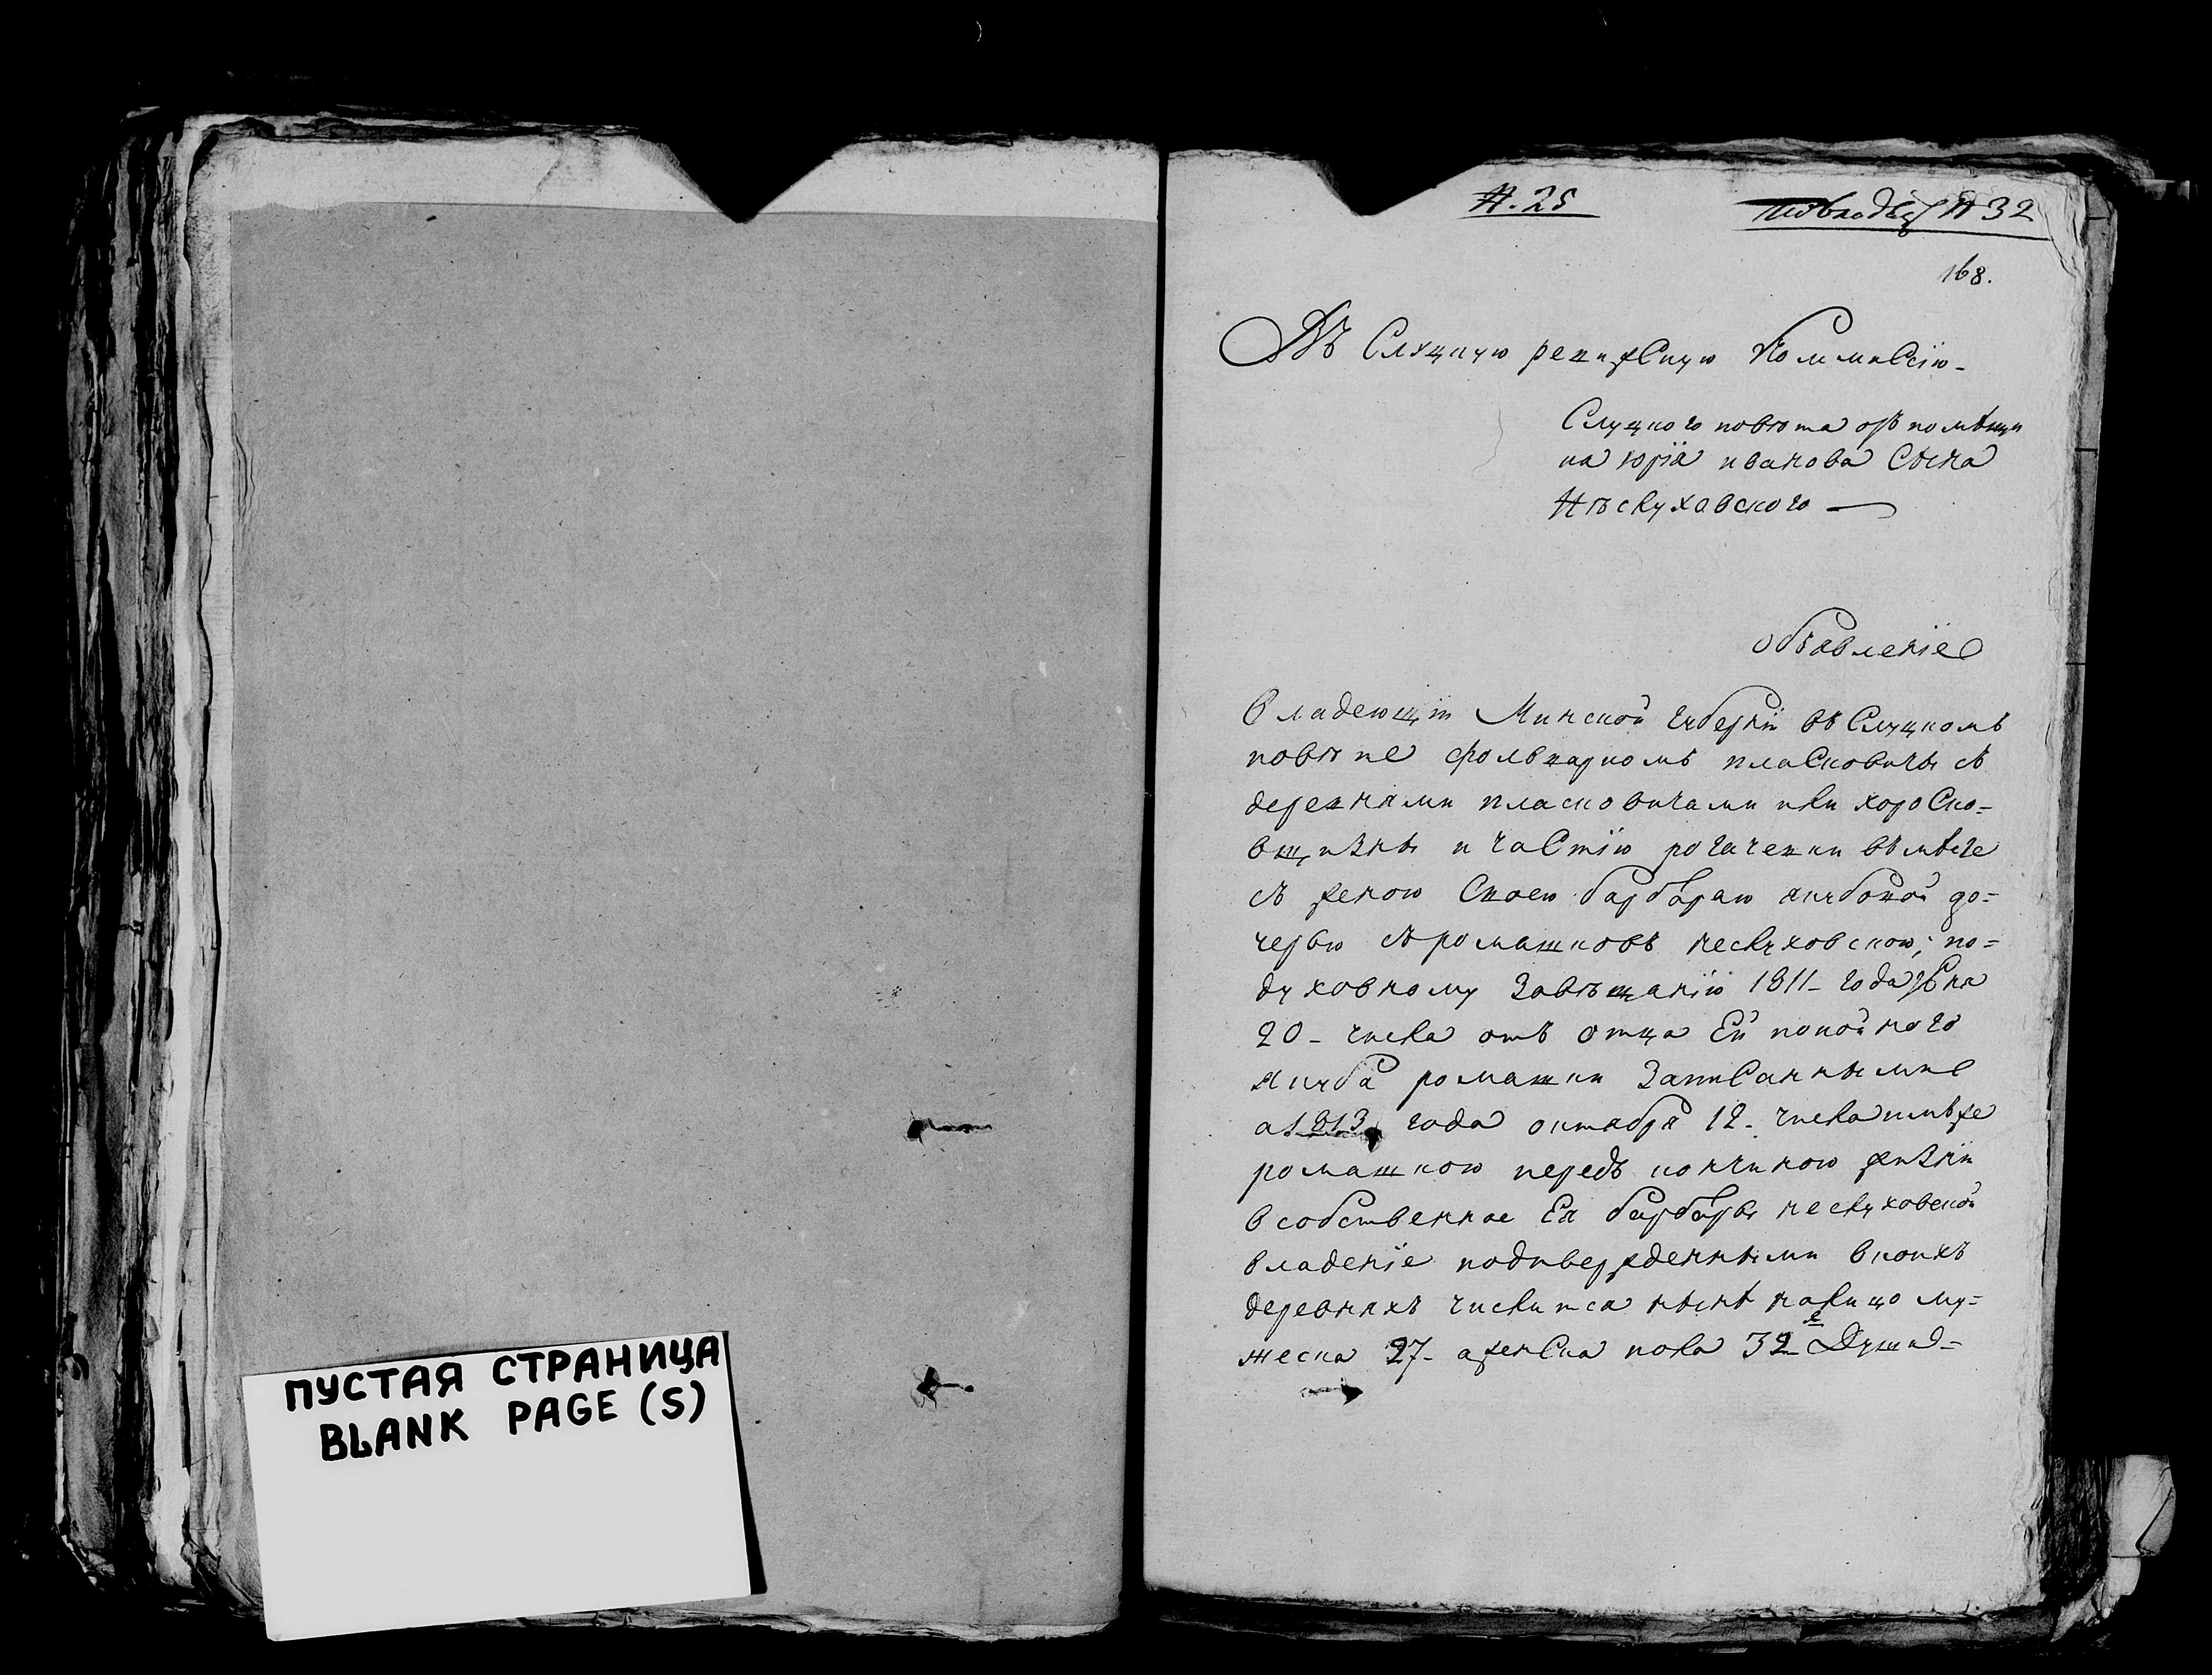 ПУСТАЯ СТРАНИЦА
BLANK PAGE (S)
N. 25
N 32
168.
Въ Слуцкую ревизскую Коммисію
Слуцкого повѣта отъ помѣщи
ка юрія иванова Сына
Нѣслуховского
объявленіе
Владеющій Минской губерніи въ Слуцкомъ
повѣте фольваркомъ пласковичы съ
деревнями пласковичами или хороско=
вщизны и частію рогачевки въмѣсте
съ женою Своею барбарою якубовой до=
черью съ ромашковъ неслуховскою, по=
духовному Завѣщанію 1811- года
20- числа отъ отца Ей покойного
якуба ромашки Записаннымъ
а 1813 года октября 12- числа имъже
ромашкою передъ кончиною жизни
в собственное Ея барбары неслуховской
владеніе подтвержденными в коихъ
деревняхъ числится нынѣ налицо му=
жеска 27- а женска пола 32 Души=